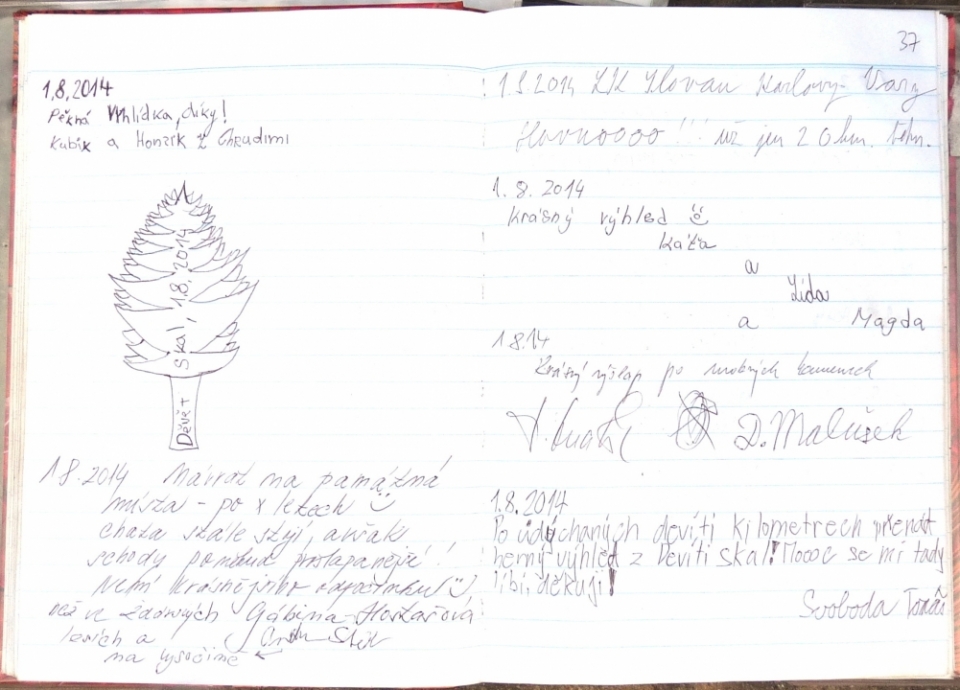 1.8.2014
Pěkná Vyhlídka, díky!
Kubík a Honzík z Chrudimi
Devět Skal, 1.8.2014
1.8.2014 Návrat na památná
místa - po x letech
chata stále stojí, avšak
schody poněkud prošlapanější!
Není krásnějšího odpočinku
než ve zdravých Gábina
lesích a
na Vysočině
37
1.8.2014 LK Slovan Karlovy Vary
Hovnoooo!!! už jen 20 km.
1.8.2014
Krásný výhled
Káťa
a
Lída
a Magda
1.8.14
Krásný výšlap po mokrých kamenech
D. Malúšek
1.8.2014
Po udýchaných devíti kilometrech přenád
herný výhled z Devíti skal! Moooc se mi tady
líbí, děkuji!
Svoboda Tomáš